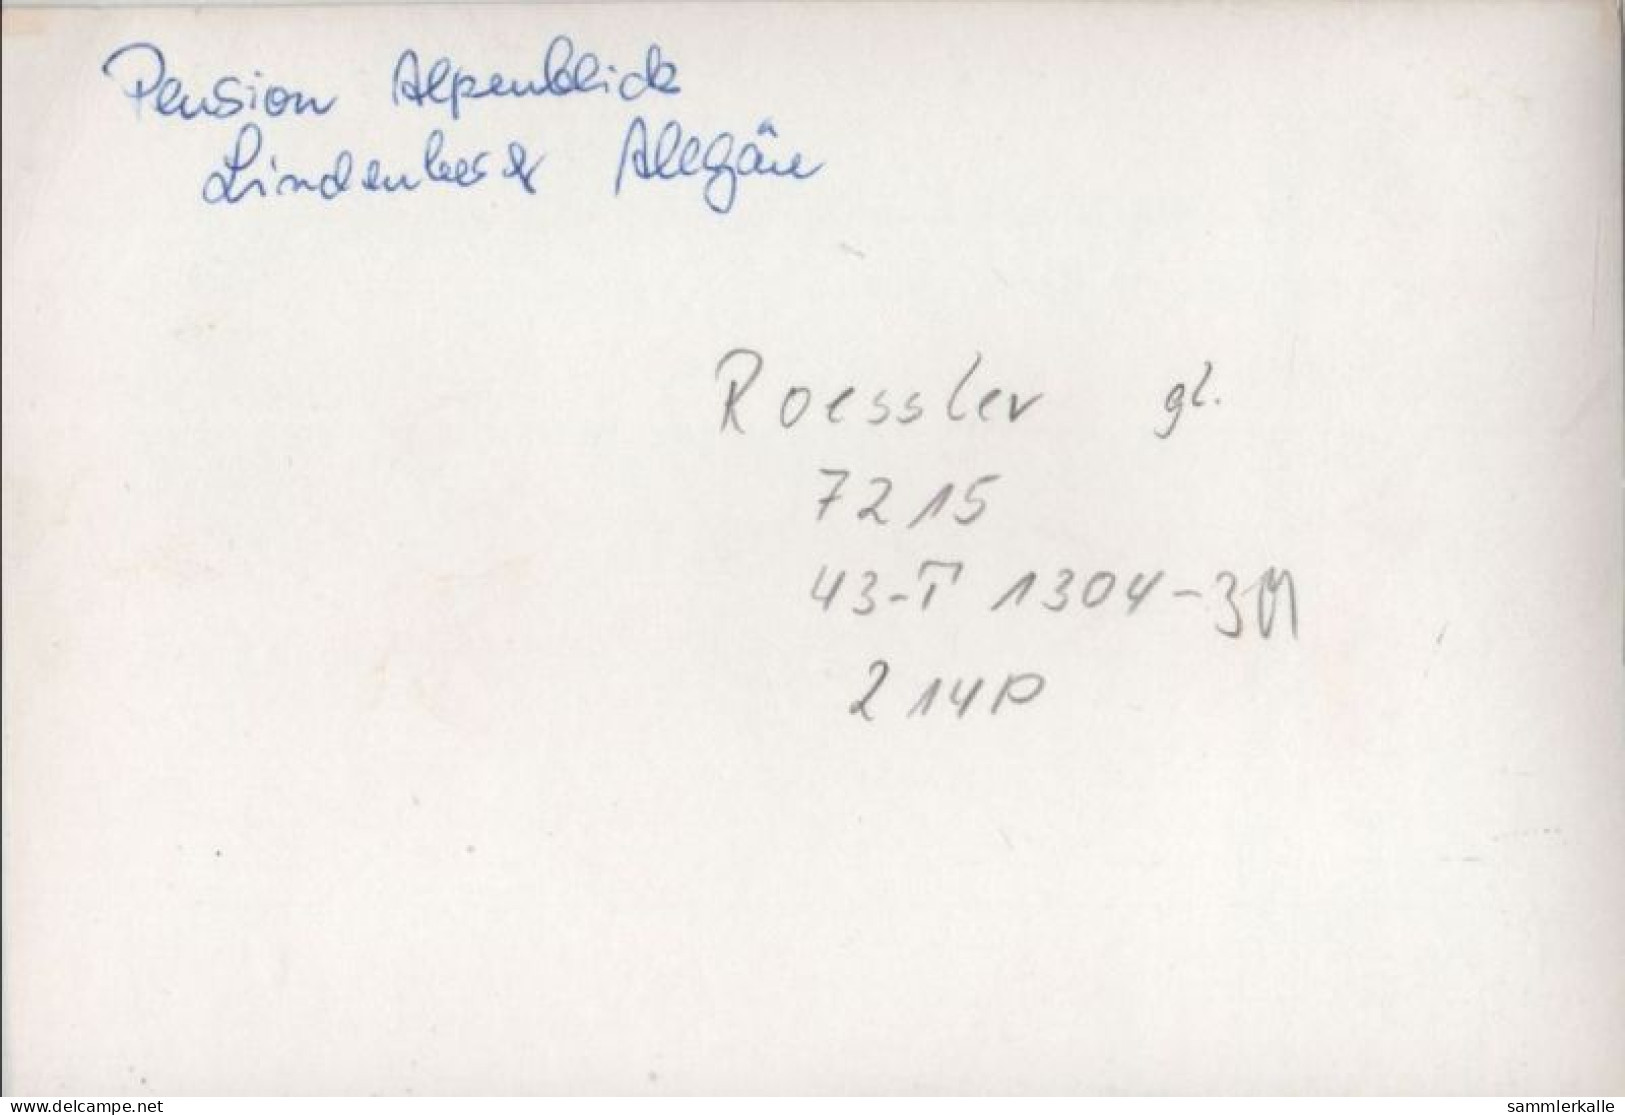 Pension Alpenblick
Lindenberg Allgäu
Roessler gl.
7215
43-T 1304-
214P
www.delcampe.net
sammlerkalle